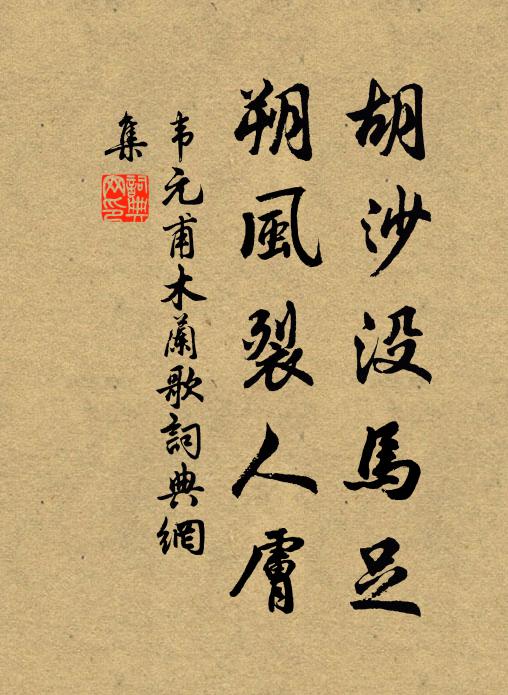 胡沙没馬足
朔風裂人膚
韦元甫木蘭歌詞典網
集
詞典
网印